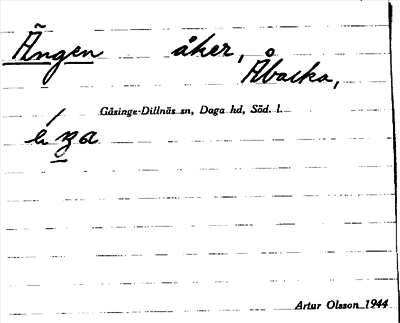 Ängen åker, Åbacka,
Gåsinge-Dillnäs sn, Daga hd, Söd. l.
Artur Olsson 1944